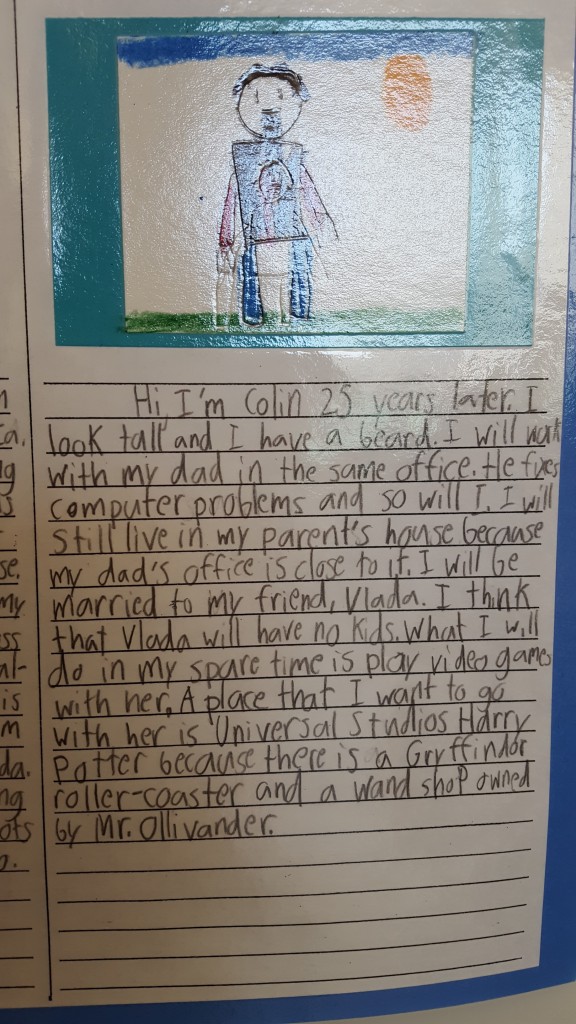 Hi, I'm Colin 25 years later. I
look tall and I have a beard. I will work
with my dad in the same office. He fixes
computer problems and so will I. I will
still live in my parent's house because
my dad's office is close to it. I will be
married to my friend, Vlada. I think
that Vlada will have no kids. What I will
do in my spare time is play video games
with her. A place that I want to go
with her is Universal Studios Harry
Potter because there is a Gryffindor
roller-coaster and a wand shop owned
by Mr. Ollivander.